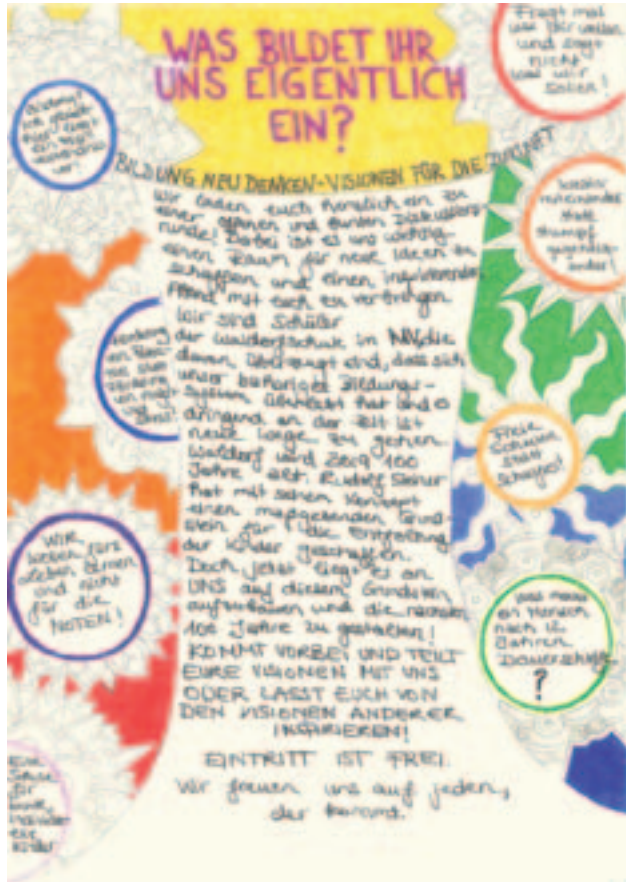 WAS BILDET IHR
UNS EIGENTLICH
EIN?
BILDUNG NEU DENKEN-VISIONEN FÜR DIE ZUKUNFT
Wir laden euch herzlich ein zu
einer offenen und bunten Diskussions-
runde! Dabei ist es uns wichtig
einen Raum für neue Ideen zu
schaffen und einen inspirierenden
Abend mit euch zu verbringen
Wir sind Schüler
der Waldorfschule in die
davon überzeugt sind, dass sich
unser bisheriges Bildungs-
system überlebt hat und es
dringend an der Zeit ist
neue Wege zu gehen
Waldorf wird 100
Jahre alt. Rudolf Steiner
hat mit seinem Konzept
einen maßgebenden Grund-
stein für die Entfaltung
der Kinder geschaffen.
Doch jetzt liegt es an
UNS auf diesen Grundstein
aufzubauen und die nächsten
100 Jahre zu gestalten!
KOMMT VORBEI UND TEILT
EURE VISIONEN MIT UNS
ODER LASST EUCH VON
DEN VISIONEN ANDERER
INSPIRIEREN!
EINTRITT IST FREI.
Wir freuen uns auf jeden,
der kommt.
Fragt mal
was wir wollen
und sagt
nicht
was wir
sollen!
kreativ
miteinander
statt
stumpf
gegenein-
ander!
Freie
Schulen
statt
WIR
wollen fürs
Leben lernen
und nicht
für die
NOTEN!
Was macht
ein Mensch
nach 12
Jahren
?
Eine
Schule
für
Kinder